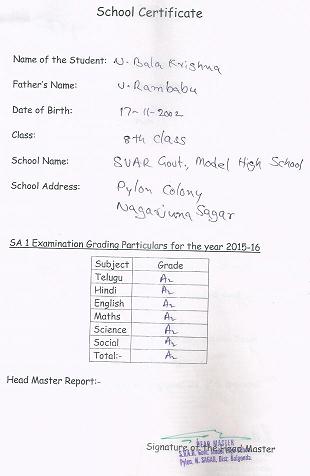 School Certificate
Name of the Student: N. Bala Krishna
Father's Name: U. Rambabu
Date of Birth: 17-11-2002
Class: 8th class
School Name: SVAR Govt., Model High School
School Address: Pylon Colony
Nagarjuna Sagar
SA 1 Examination Grading Particulars for the year 2015-16
Subject Grade
Telugu A2
Hindi A2
English A2
Maths A2
Science A2
Social A2
Total:- A2
Head Master Report:-
Signature of the Head Master
HEAD MASTER
Pylon, N. SAGAR, Dist. Nalgonda.